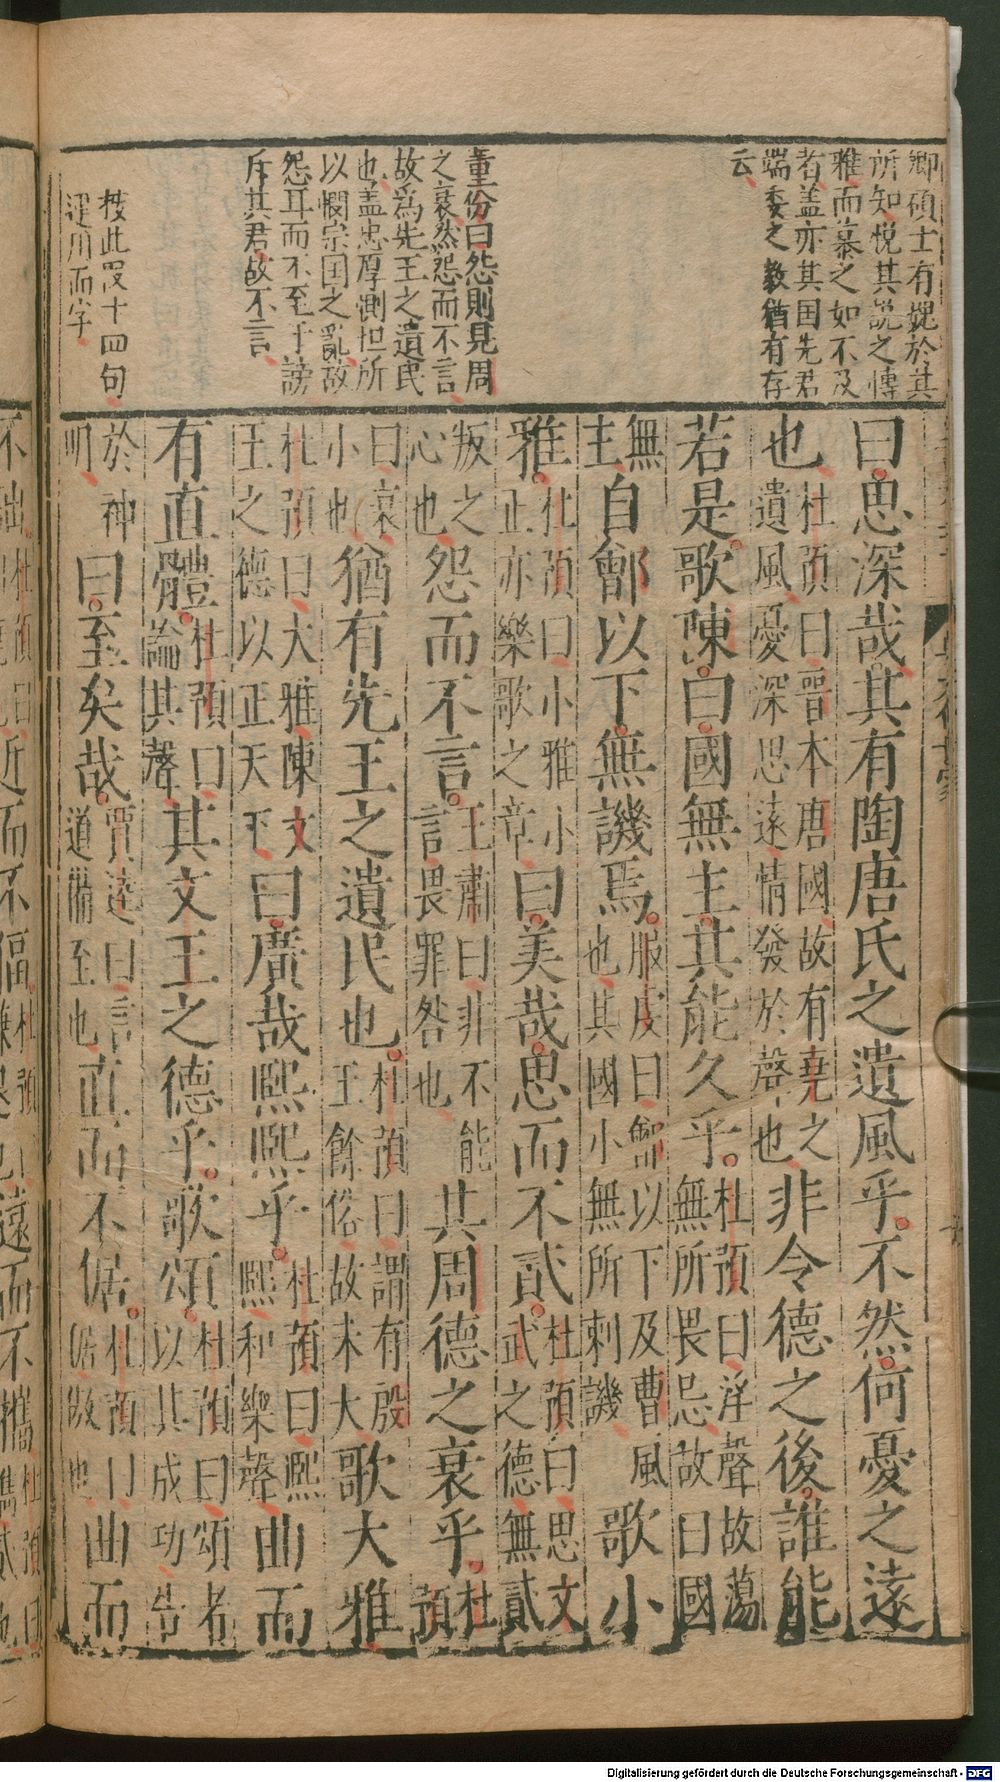 卿碩士有槩於其
所知悅其説之傳
雅而慕之如不及
者盖亦其国先君
端委之教猶有存
云
董份曰怨則見周
之衰然怨而不言
故爲先王之遺民
也盖忠厚惻怛所
以憫宗国之亂故
怨耳而不至于謗
斥其君故不言
按此叚十四句
迭用而字
曰思深哉其有陶唐氏之遺風乎不然何憂之遠
也杜預曰晉本唐國故有堯之遺風憂深思遠情發於聲也非令德之後誰能
若是歌陳曰國無主其能久乎杜預曰淫聲放蕩無所畏忌故曰國
無主自鄶以下無譏焉服虔曰鄶以下及曹風也其國小無所刺譏歌小
雅杜預曰小雅小正亦樂歌之章曰美哉思而不貳杜預曰思文武之德無貳
叛之心也怨而不言王肅曰非不能言畏罪咎也其周德之衰乎杜預
曰衰小也猶有先王之遺民也杜預曰謂有殷王餘俗故未大歌大雅
杜預曰大雅陳文王之德以正天下曰廣哉熙熙乎杜預曰熙熙和樂聲曲而
有直體杜預曰論其聲其文王之德乎歌頌杜預曰頌者以其成功告
於神明曰至矣哉賈逵曰言道備至也直而不倨杜預曰倨傲也曲而
Digitalisierung gefördert durch die Deutsche Forschungsgemeinschaft - DFG